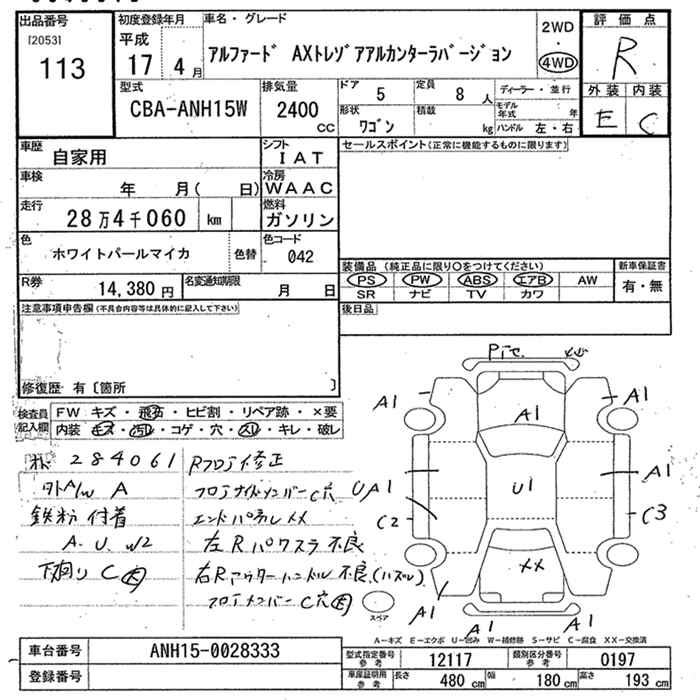 出品番号
[2053]
113
初度登録年月
平成
17 4月
車名・グレード
アルファード AXトレゾアアルカンターラバージョン
2WD
4WD
評価点
R
外装 内装
E C
型式
CBA-ANH15W
排気量
2400
CC
ドア
5
定員
8人
形状
ワゴン
積載
kg
ディーラー・並行
モデル年式
年
ハンドル 左・右
車歴
自家用
シフト
IAT
車検
年 月( 日)
冷房
WAAC
走行
28万4千060 km
燃料
ガソリン
色
ホワイトパールマイカ
色替
色コード
042
R券
14,380円
名変通知期限
月 日
セールスポイント(正常に機能するものに限ります)
装備品(純正品に限り○をつけてください)
PS PW ABS エアB AW
SR ナビ TV カワ
新車保証書
有・無
後日品
注意事項申告欄(不具合内容等は具体的に記入して下さい)
修復歴 有〔箇所 〕
検査員記入欄
FW キズ・飛石・ヒビ割・リペア跡・×要
内装 キズ・汚レ・コゲ・穴・スレ・キレ・破レ
284061
A
鉄粉付着
A.U.W2
下廻りC
Rフロア修正
フロアサイドメンバーC穴
エンドパネルXX
左Rパワスラ不良
右Rアウターハンドル不良
フロアメンバーC穴
A1
A1
A1
UA1
U1
A1
C2
C3
XX
A1
A1
A1
スペア
A-キズ E-エクボ U-凹み W-補修跡 S-サビ C-腐食 XX-交換済
車台番号
ANH15-0028333
登録番号
型式指定番号
参考
12117
類別区分番号
参考
0197
車庫証明用
参考
長さ 480cm 幅 180cm 高さ 193cm